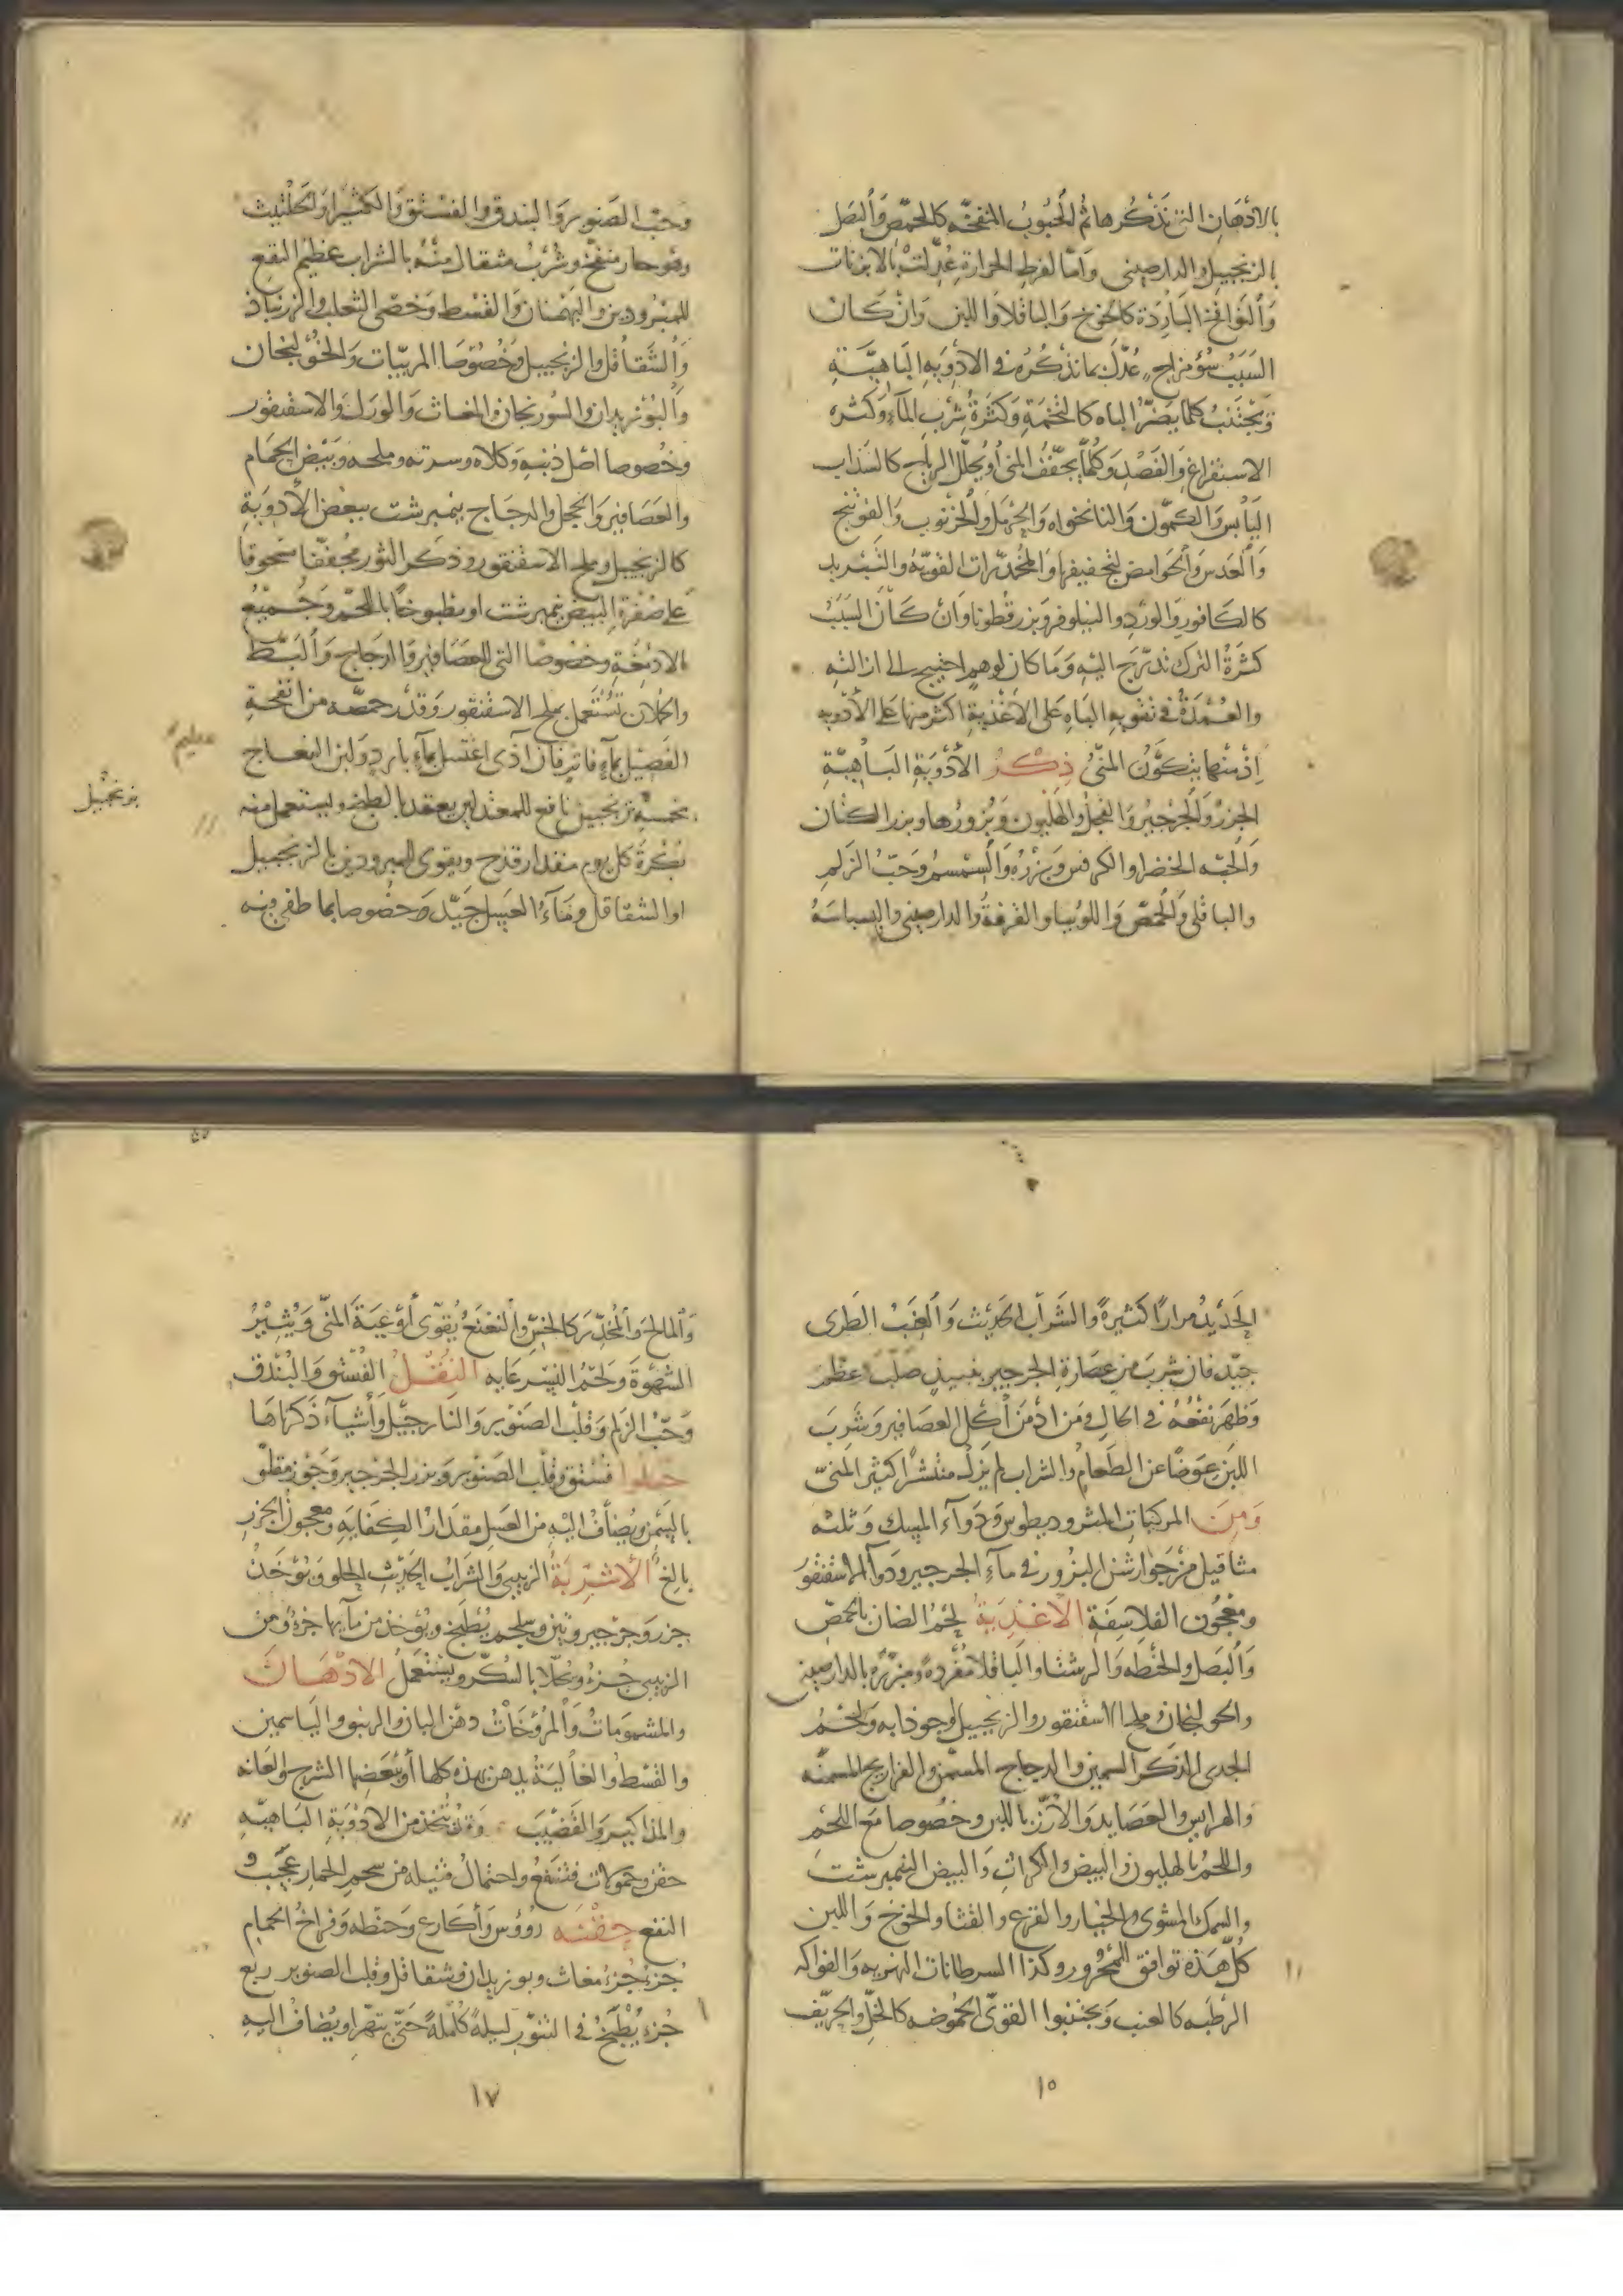 بالادهان التى نذكرها ثم الحبوب المنفخه كالحمص والبصل
بالزنجبيل والدارصينى واما لفرط الحرارة عدلت بالابزنات
والنوافخ الباردة كالخوخ والباقلا واللبن وان كان
السبب سؤ مزاج عدل بما نذكره فى الادوية الباهية
ويجتنب كلما يضر الباه كالتخمة وكثرة شرب الماء وكثره
الاستفراغ والفصد وكلما يجفف المنى او يحلل الرياح كالسذاب
اليابس والكمون والنانخواه والحرمل والخرنوب والفوتنج
والعدس والحوامض لتجفيفها والمخدرات القويه والتبريد
كالكافور والورد والنيلوفر وبزرقطونا وان كان السبب
كثرة الترك تدرج اليه وما كان لوهم احتيج الى ازالته
والعمدة فى تقويه الباه على الاغذية اكثر منها على الادويه
اذ منها يتكون المنى ذكر الأدوية الباهية
الجزر والجرجير والفجل والهليون وبزورها وبزر الكتان
والحبه الخضرا والكرفس وبزره والسمسم وحب الزلم
والباقلى والحمص واللوبيا والقرفة والدارصينى والبسباسة
وحب الصنوبر والبندق والفستق والكثيرا والحلتيت
وهو حار منفخ وشرب مثقال منه بالشراب عظيم النفع
للمبرودين والبهمنان والقسط وخصى الثعلب والزرنباذ
والشقاقل والزنجبيل وخصوصا المربيات والخولنجان
والبوزيدان والسورنجان والمغاث والورل والاسقنقور
وخصوصا اصل ذنبه وكلاه وسرته وملحه وبيض الحمام
والعصافير والحجل والدجاج بنمبرشت ببعض الأدوية
كالزنجبيل وملح الاسقنقور وذكر الثور مجففا مسحوقا
على صفرة البيض نمبرشت او مطبوخا باللحم وجميع
الادمغة وخصوصا التى للعصافير والدجاج والبط
والحملان تستعمل بملح الاسقنقور وقدر حمصه من انفحة
الفصيل بماء فاتر فان اذى اغتسل بماء بارد ولبن النعاج
بخمسة ترنجبين نافع للمعتدلين يعقد بالطبخ ويستعمل منه
بكرة كل يوم مقدار قدح ويقوى المبرودين بالزنجبيل
او الشقاقل وماء العسل جيد وخصوصا بما طفى فيه
الحديد مرارا كثيرة والشراب الحديث والعنب الطرى
جيد فان شرب من عصارة الجرجير بنبيذ صلب عظم
وظهر نفعه فى الحال ومن ادمن اكل العصافير وشرب
اللبن عوضا عن الطعام والشراب لم يزل منتشرا كثير المنى
ومن المركبات المثروديطوس ودواء المسك وثلثه
مثاقيل من جوارشن البزور فى ماء الجرجير ودوا الاسقنقور
ومعجون الفلاسفة الاغذية لحم الضان بالحمص
والبصل والحنطه والرشتا والباقلا مفردة ومبزرة بالدارصينى
والخولنجان وملح الاسقنقور والزنجبيل وجوذابه ولحم
الجدى الذكر السمين والدجاج المسمن والفراريج المسمنه
والهرايس والعصايد والارز باللبن وخصوصا مع اللحم
واللحم بالهليون والبيض والكراث والبيض النمبرشت
والسمك المشوى والخيار والقرع والقثا والخوخ واللبن
كل هذه توافق المحرور وكذا السرطانات النهريه والفواكه
الرطبه كالعنب ويجتنبوا القوى الحموضه كالخل والحريف
١٥
والمالح والمخدر كالخس والنعنع يقوى أوعية المنى ويثير
الشهوة ولحم النسر غايه النقل الفستق والبندق
وحب الزلم وقلب الصنوبر والنارجيل وأشياء ذكرناها
حلوا فستق وقلب الصنوبر وبزر الجرجير وجوز مقلو
بالسمن ويضاف اليه من العسل مقدار الكفاية ومعجون الجزر
بالغ الأشربة الزبيبى والشراب الحديث الحلو ويؤخذ
جزر وجرجير وتين وسلجم يطبخ ويؤخذ من مآيها جزء ومن
الزبيبى جزء ويحلا بالسكر ويستعمل الادهان
والمشمومات والمروخات دهن البان والزنبق والياسمين
والقسط والغالية يدهن بهذه كلها أو بعضها الشرج والعانه
والمذاكير والقضيب وقد تتخذ من الادوية الباهيه
حقن وحمولات فتنفع واحتمال فتيله من شحم الحمار عجيب
النفع حقنه رؤوس وأكارع وحنطه وفراخ الحمام
جزء جزء مغاث وبوزيدان وشقاقل وقلب الصنوبر ربع
جزء يطبخ فى التنور ليلة كاملة حتى يتهرا ويضاف اليه
١٧